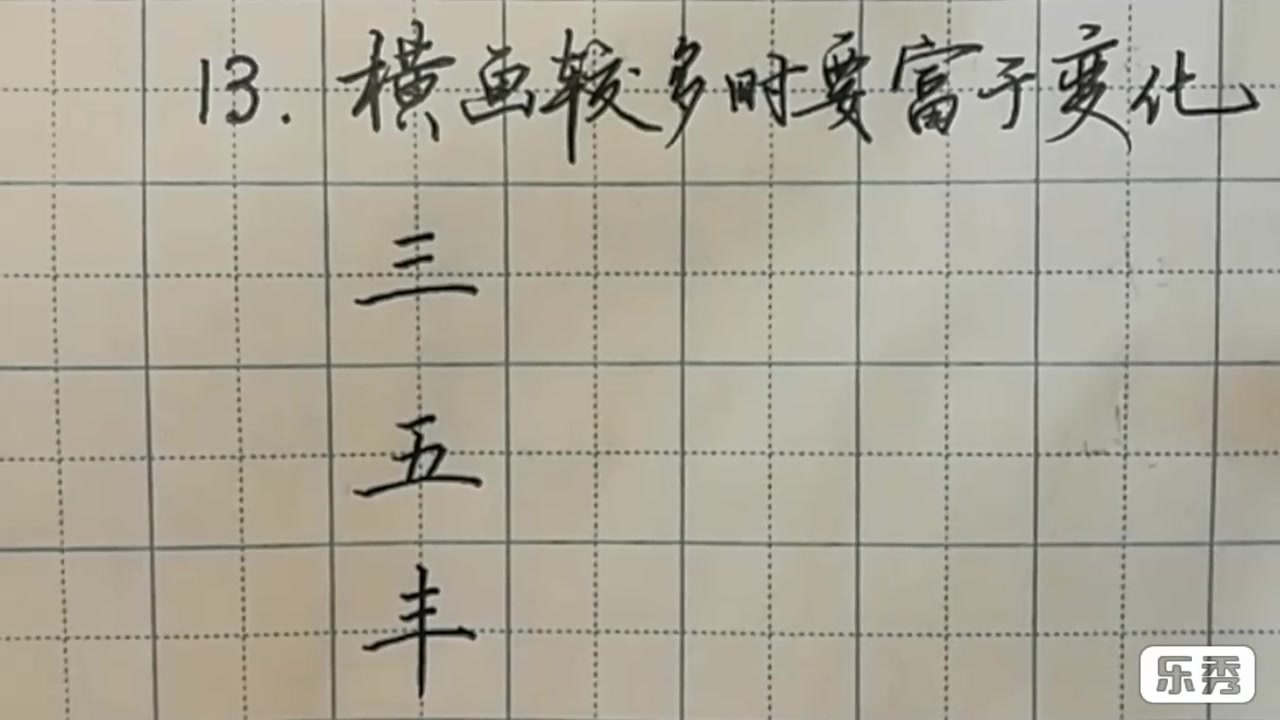 13. 横画较多时要富于变化
三
五
丰
乐秀